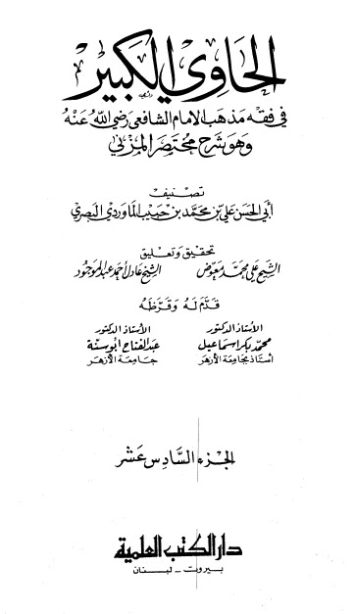 الحاوي الكبير
في فقه مذهب الإمام الشافعي رضي الله عنه
وهو شرح مختصر المزني
تصنيف
أبي الحسن علي بن محمد بن حبيب الماوردي البصري
تحقيق وتعليق
الشيخ علي محمد معوض الشيخ عادل أحمد عبد الموجود
قدم له وقرظه
الأستاذ الدكتور
محمد بكر اسماعيل
أستاذ بجامعة الأزهر
الأستاذ الدكتور
عبد الفتاح أبو سنة
جامعة الأزهر
الجزء السادس عشر
دار الكتب العلمية
بيروت - لبنان